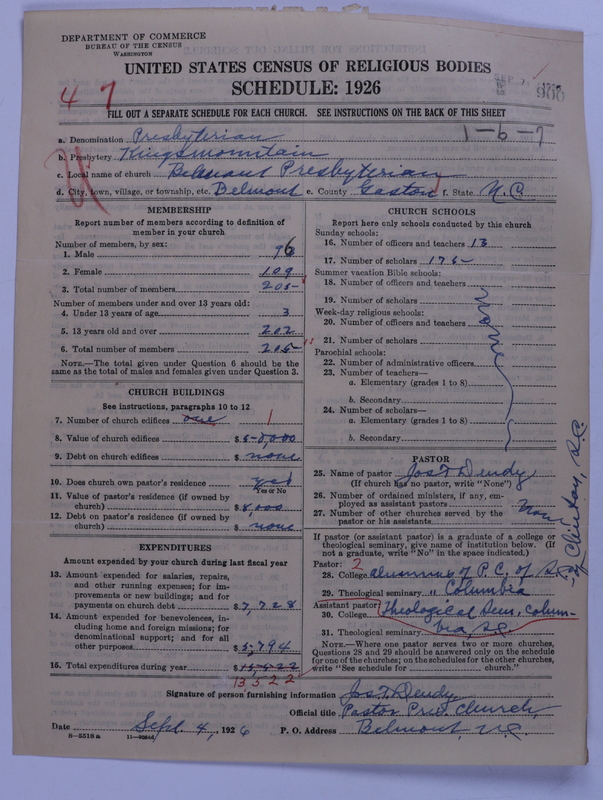 DEPARTMENT OF COMMERCE
BUREAU OF THE CENSUS
WASHINGTON
UNITED STATES CENSUS OF RELIGIOUS BODIES
SCHEDULE: 1926
SEP 7
4 7
FILL OUT A SEPARATE SCHEDULE FOR EACH CHURCH. SEE INSTRUCTIONS ON THE BACK OF THIS SHEET
1-6-7
a. Denomination Presbyterian
b. Presbytery Kings mountain
c. Local name of church Belmont Presbyterian
d. City, town, village, or township, etc. Belmont e. County Gaston f. State N.C.
MEMBERSHIP
Report number of members according to definition of
member in your church
Number of members, by sex:
1. Male 96
2. Female 109
3. Total number of members 205
Number of members under and over 13 years old:
4. Under 13 years of age 3
5. 13 years old and over 202
6. Total number of members 205
NOTE.—The total given under Question 6 should be
same as the total of males and females given under Question 3.
CHURCH BUILDINGS
See instructions, paragraphs 10 to 12
7. Number of church edifices one 1
8. Value of church edifices $50,000
9. Debt on church edifices $ none
10. Does church own pastor's residence yes
Yes or No
11. Value of pastor's residence (if owned by
church) $8,000
12. Debt on pastor's residence (if owned by
church) $ none
EXPENDITURES
Amount expended by your church during last fiscal year
13. Amount expended for salaries, repairs,
and other running expenses; for im-
provements or new buildings; and for
payments on church debt $7,728
14. Amount expended for benevolences, in-
cluding home and foreign missions; for
denominational support; and for all
other purposes $5,794
15. Total expenditures during year $13,522
13522
CHURCH SCHOOLS
Report here only schools conducted by this church
Sunday schools:
16. Number of officers and teachers 13
17. Number of scholars 175
Summer vacation Bible schools:
18. Number of officers and teachers
19. Number of scholars
Week-day religious schools:
20. Number of officers and teachers
21. Number of scholars
none
Parochial schools:
22. Number of administrative officers
23. Number of teachers—
a. Elementary (grades 1 to 8)
b. Secondary
24. Number of scholars—
a. Elementary (grades 1 to 8)
b. Secondary
PASTOR
25. Name of pastor Jos T. Dendy
(If church has no pastor, write "None")
26. Number of ordained ministers, if any, em-
ployed as assistant pastors
27. Number of other churches served by the
pastor or his assistants
none
If pastor (or assistant pastor) is a graduate of a college or
theological seminary, give name of institution below. (If
not a graduate, write "No" in the space indicated.)
Pastor: 2
28. College alumnus of P.C. of S.C.
of Clinton, S.C.
29. Theological seminary " Columbia
Assistant pastor:
30. College Theological Sem, Colum-
31. Theological seminary bia, S.C.
NOTE.—Where one pastor serves two or more churches,
Questions 28 and 29 should be answered only on the schedule
for one of the churches; on the schedules for the other churches,
write "See schedule for church."
Signature of person furnishing information Jos T. Dendy
Official title Pastor Pres. Church,
Date Sept. 4, 1926 P. O. Address Belmont, N.C.
8—5518a